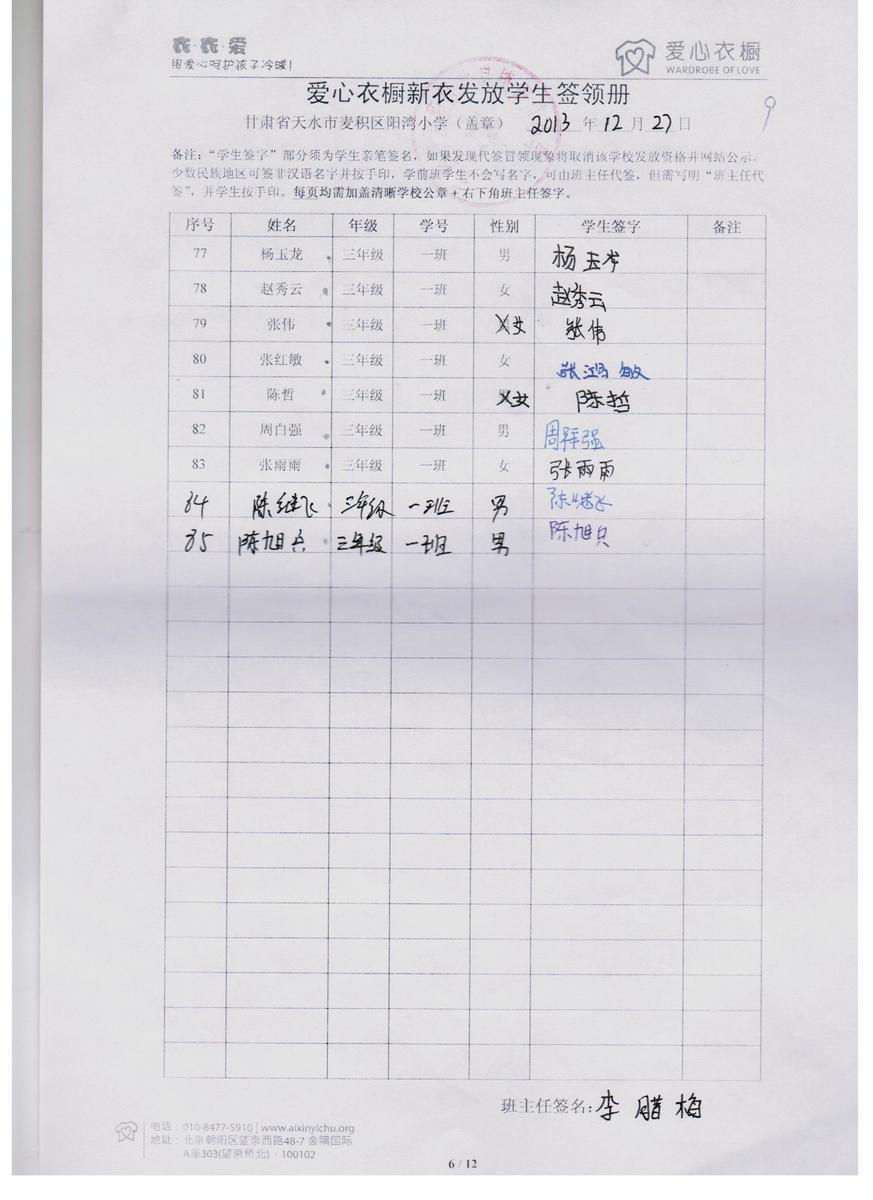 衣·衣·爱
用爱心呵护孩子冷暖!
爱心衣橱
WARDROBE OF LOVE
爱心衣橱新衣发放学生签领册
甘肃省天水市麦积区阳湾小学(盖章) 2013 年 12 月 27 日
9
备注:“学生签字”部分须为学生亲笔签名,如果发现代签冒领现象将取消该学校发放资格并网站公示。
少数民族地区可签非汉语名字并按手印,学前班学生不会写名字,可由班主任代签,但需写明“班主任代
签”,并学生按手印。每页均需加盖清晰学校公章+右下角班主任签字。
序号 姓名 年级 学号 性别 学生签字 备注
77 杨玉龙 三年级 一班 男 杨玉
78 赵秀云 三年级 一班 女 赵秀云
79 张伟 三年级 一班 女 张伟
80 张红敏 三年级 一班 女 张鸿敏
81 陈哲 三年级 一班 女 陈哲
82 周白强 三年级 一班 男 周 强
83 张雨雨 三年级 一班 女 张雨雨
84 陈继飞 三年级 一班 男 陈继飞
85 陈旭兵 三年级 一班 男 陈旭兵
班主任签名:李腊梅
电话:010-8477-5910 | www.aixinyichu.org
地址:北京朝阳区望京西路48-7 金隅国际
A座303(望京桥北)·100102
6 / 12